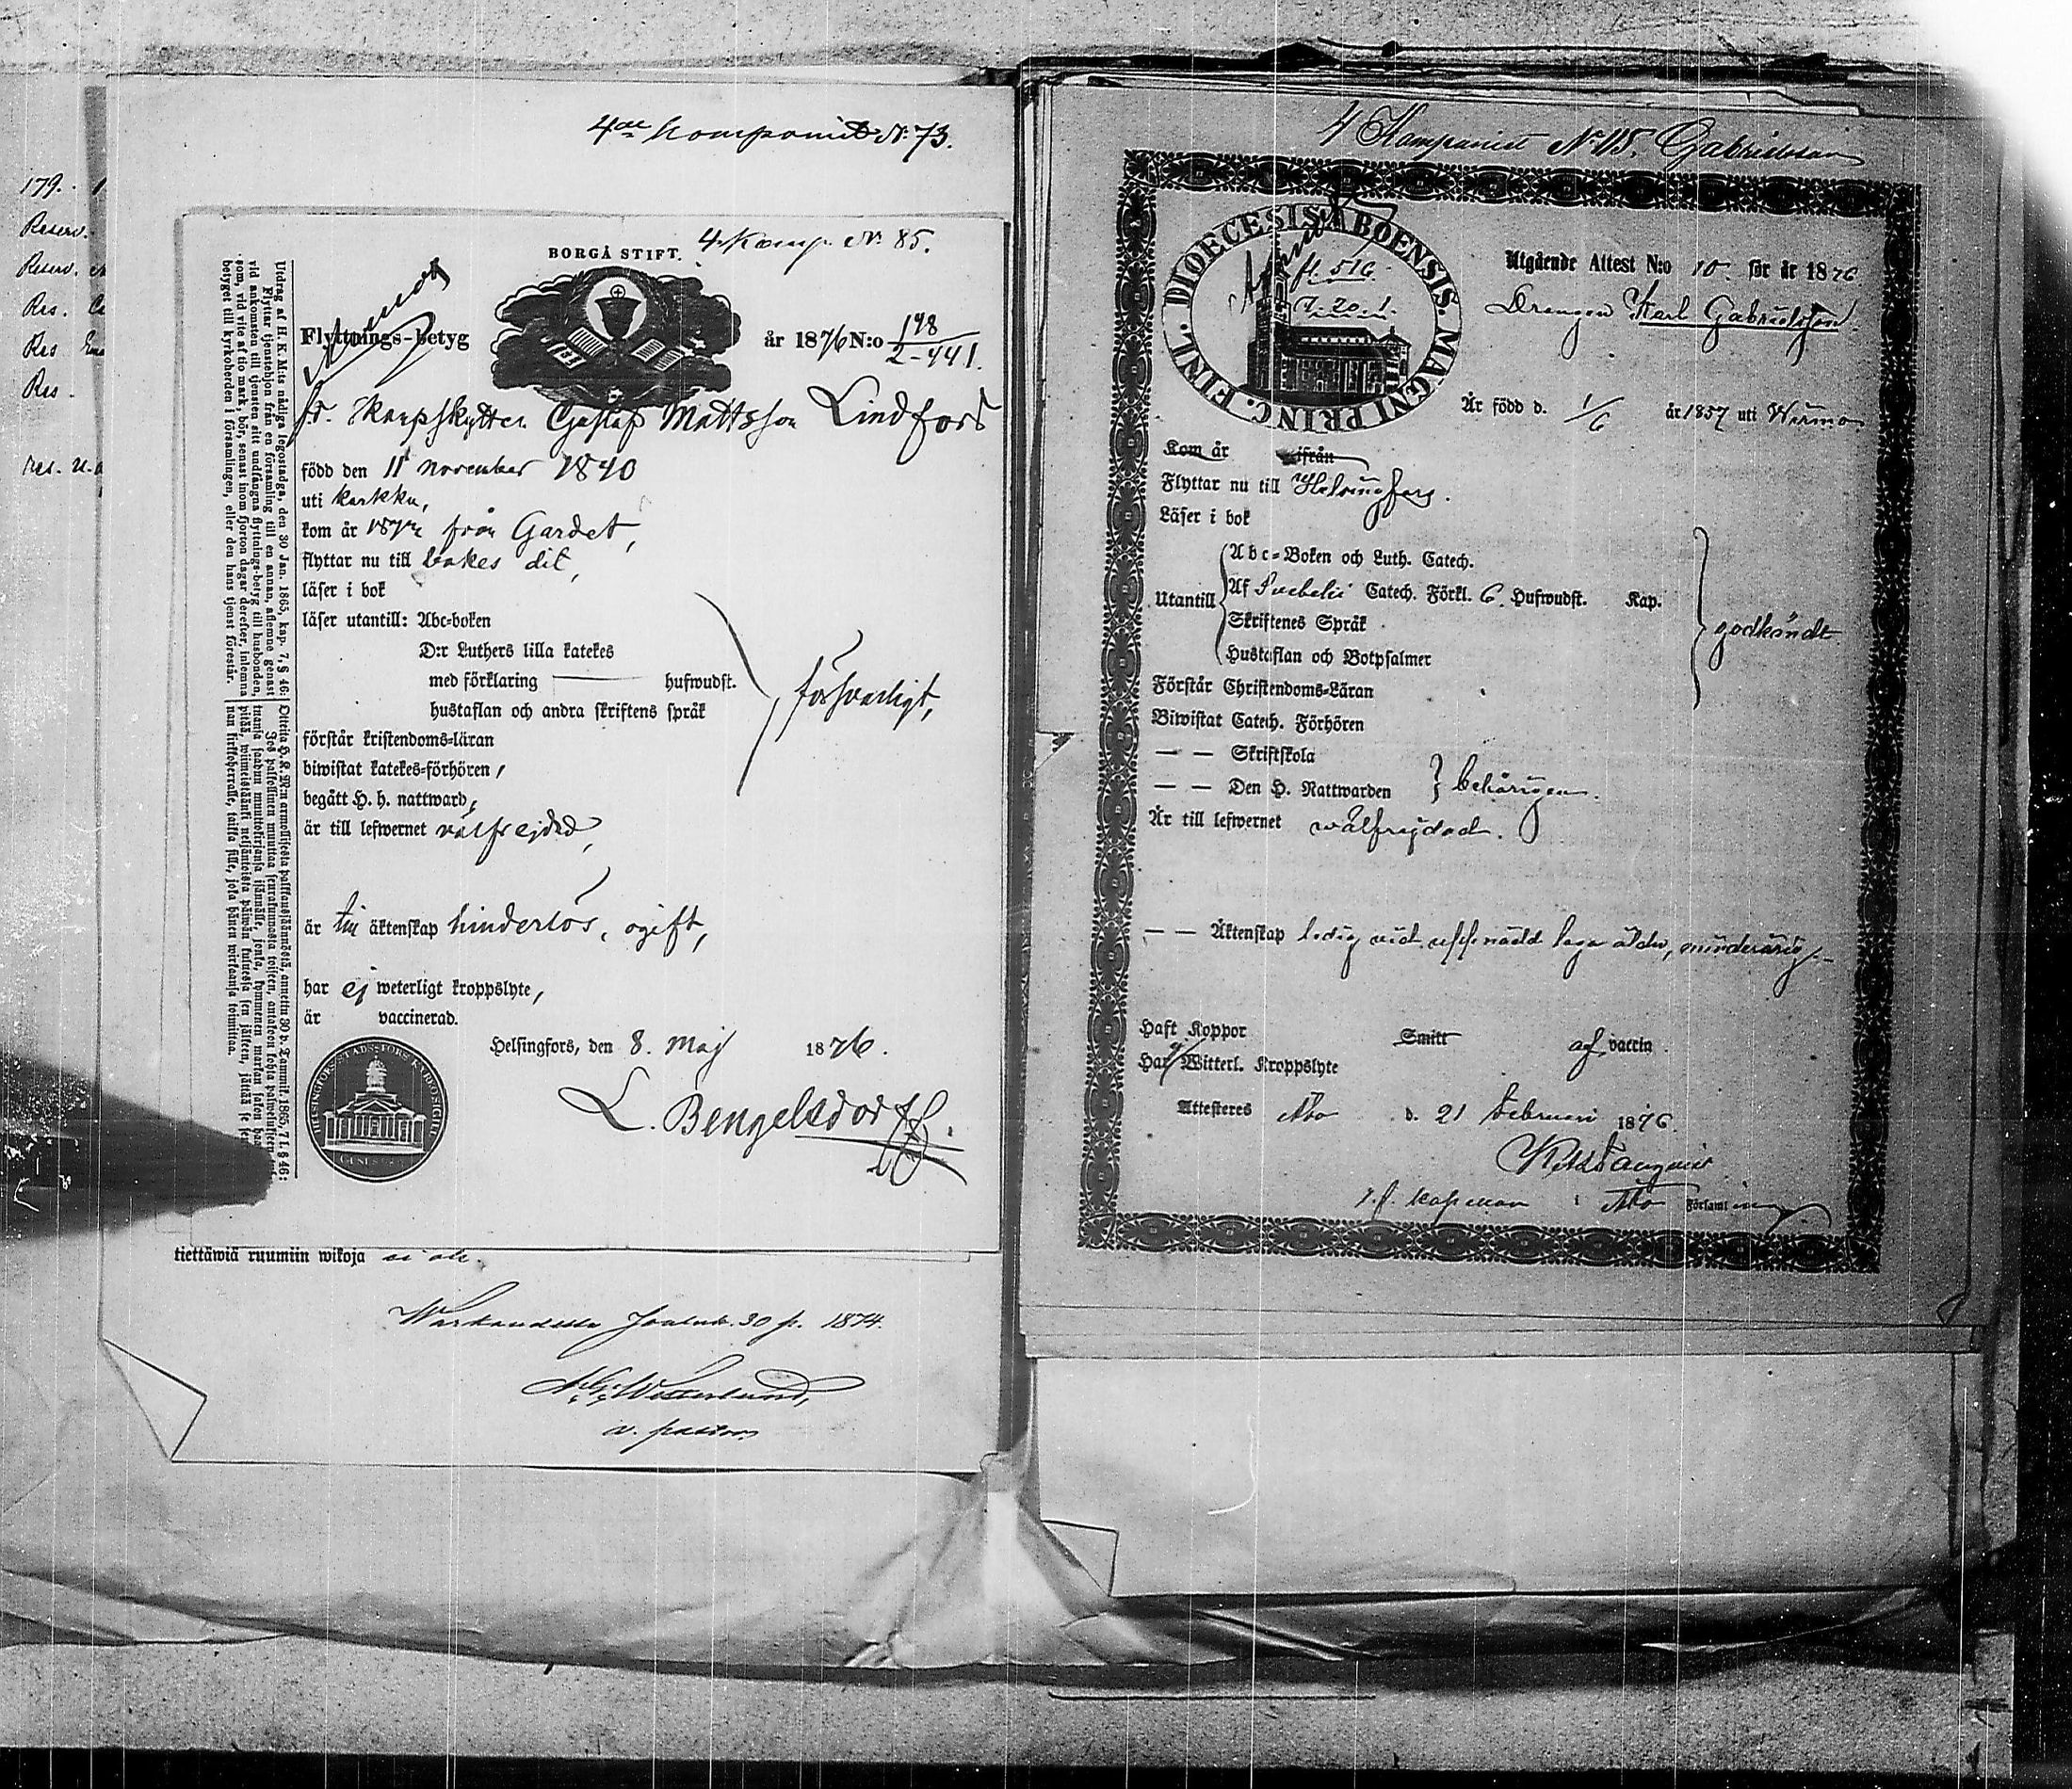 179.
Reserv.
Reserv.
Res.
Res
Res
4de Kompanit № 73.
4. Komp. № 85.
BORGÅ STIFT.
Flyttnings-betyg
år 1876 N:o 148
2-441.
fr. Skarpskytten Gustaf Mattsson Lindfors
född den 11 november 1840
uti Karkku,
kom år 1872 från Gardet,
flyttar nu till bakes dit,
läser i bok
läser utantill: Abc-boken
D:r Luthers lilla katekes
med förklaring — hufwudst.
hustaflan och andra skriftens språk
försvarligt,
förstår kristendoms-läran
biwistat katekes-förhören,
begått H. h. nattward,
är till lefwernet välfrejdad,
är till äktenskap hinderlös, ogift,
har ej weterligt kroppslyte,
är vaccinerad.
Helsingfors, den 8. Maj 1876.
L. Bengelsdorff.
Utdrag af H. K. M:ts nådiga legostadga, den 30 Jan. 1865, kap. 7, § 46:
Flyttar tjenstehjon från en församling till en annan, aflemne genast
vid ankomsten till tjensten sitt undfångna flyttnings-betyg till husbonden,
som, vid vite af tio mark, bör, senast inom fjorton dagar derefter, inlemna
betyget till kyrkoherden i församlingen, eller den hans tjenst förestår.
tiettäwiä ruumiin wikoja ei ole.
Warkaudessa Jouluk. 30 p. 1874.
Westerlund,
v. pastor
4 Kompaniet № 115. Gabrielsson
DIOECESIS ABOENSIS. MAGNI PRINC. FINL.
fl. 516.
Utgående Attest N:o 10. för år 1876
Drengen Karl Gabrielsson.
Är född d. 1/6 år 1857 uti Wirmo
Kom år ifrån
Flyttar nu till Helsingfors.
Läser i bok
Utantill
Abc-Boken och Luth. Catech.
Af Svebelii Catech. Förkl. 6. Hufwudst. Kap.
Skriftenes Språk
Hustaflan och Botpsalmer
godkändt
Förstår Christendoms-Läran
Biwistat Catech. Förhören
— — Skriftskola
— — Den H. Nattwarden
behörigen.
Är till lefwernet wälfrejdad.
— — Äktenskap ledig vid uppnådd laga ålder, minderårig.
Haft Koppor Smitt af vaccin
Har ej Witterl. Kroppslyte
Attesteres Åbo d. 21 Februari 1876.
i Åbo Församling